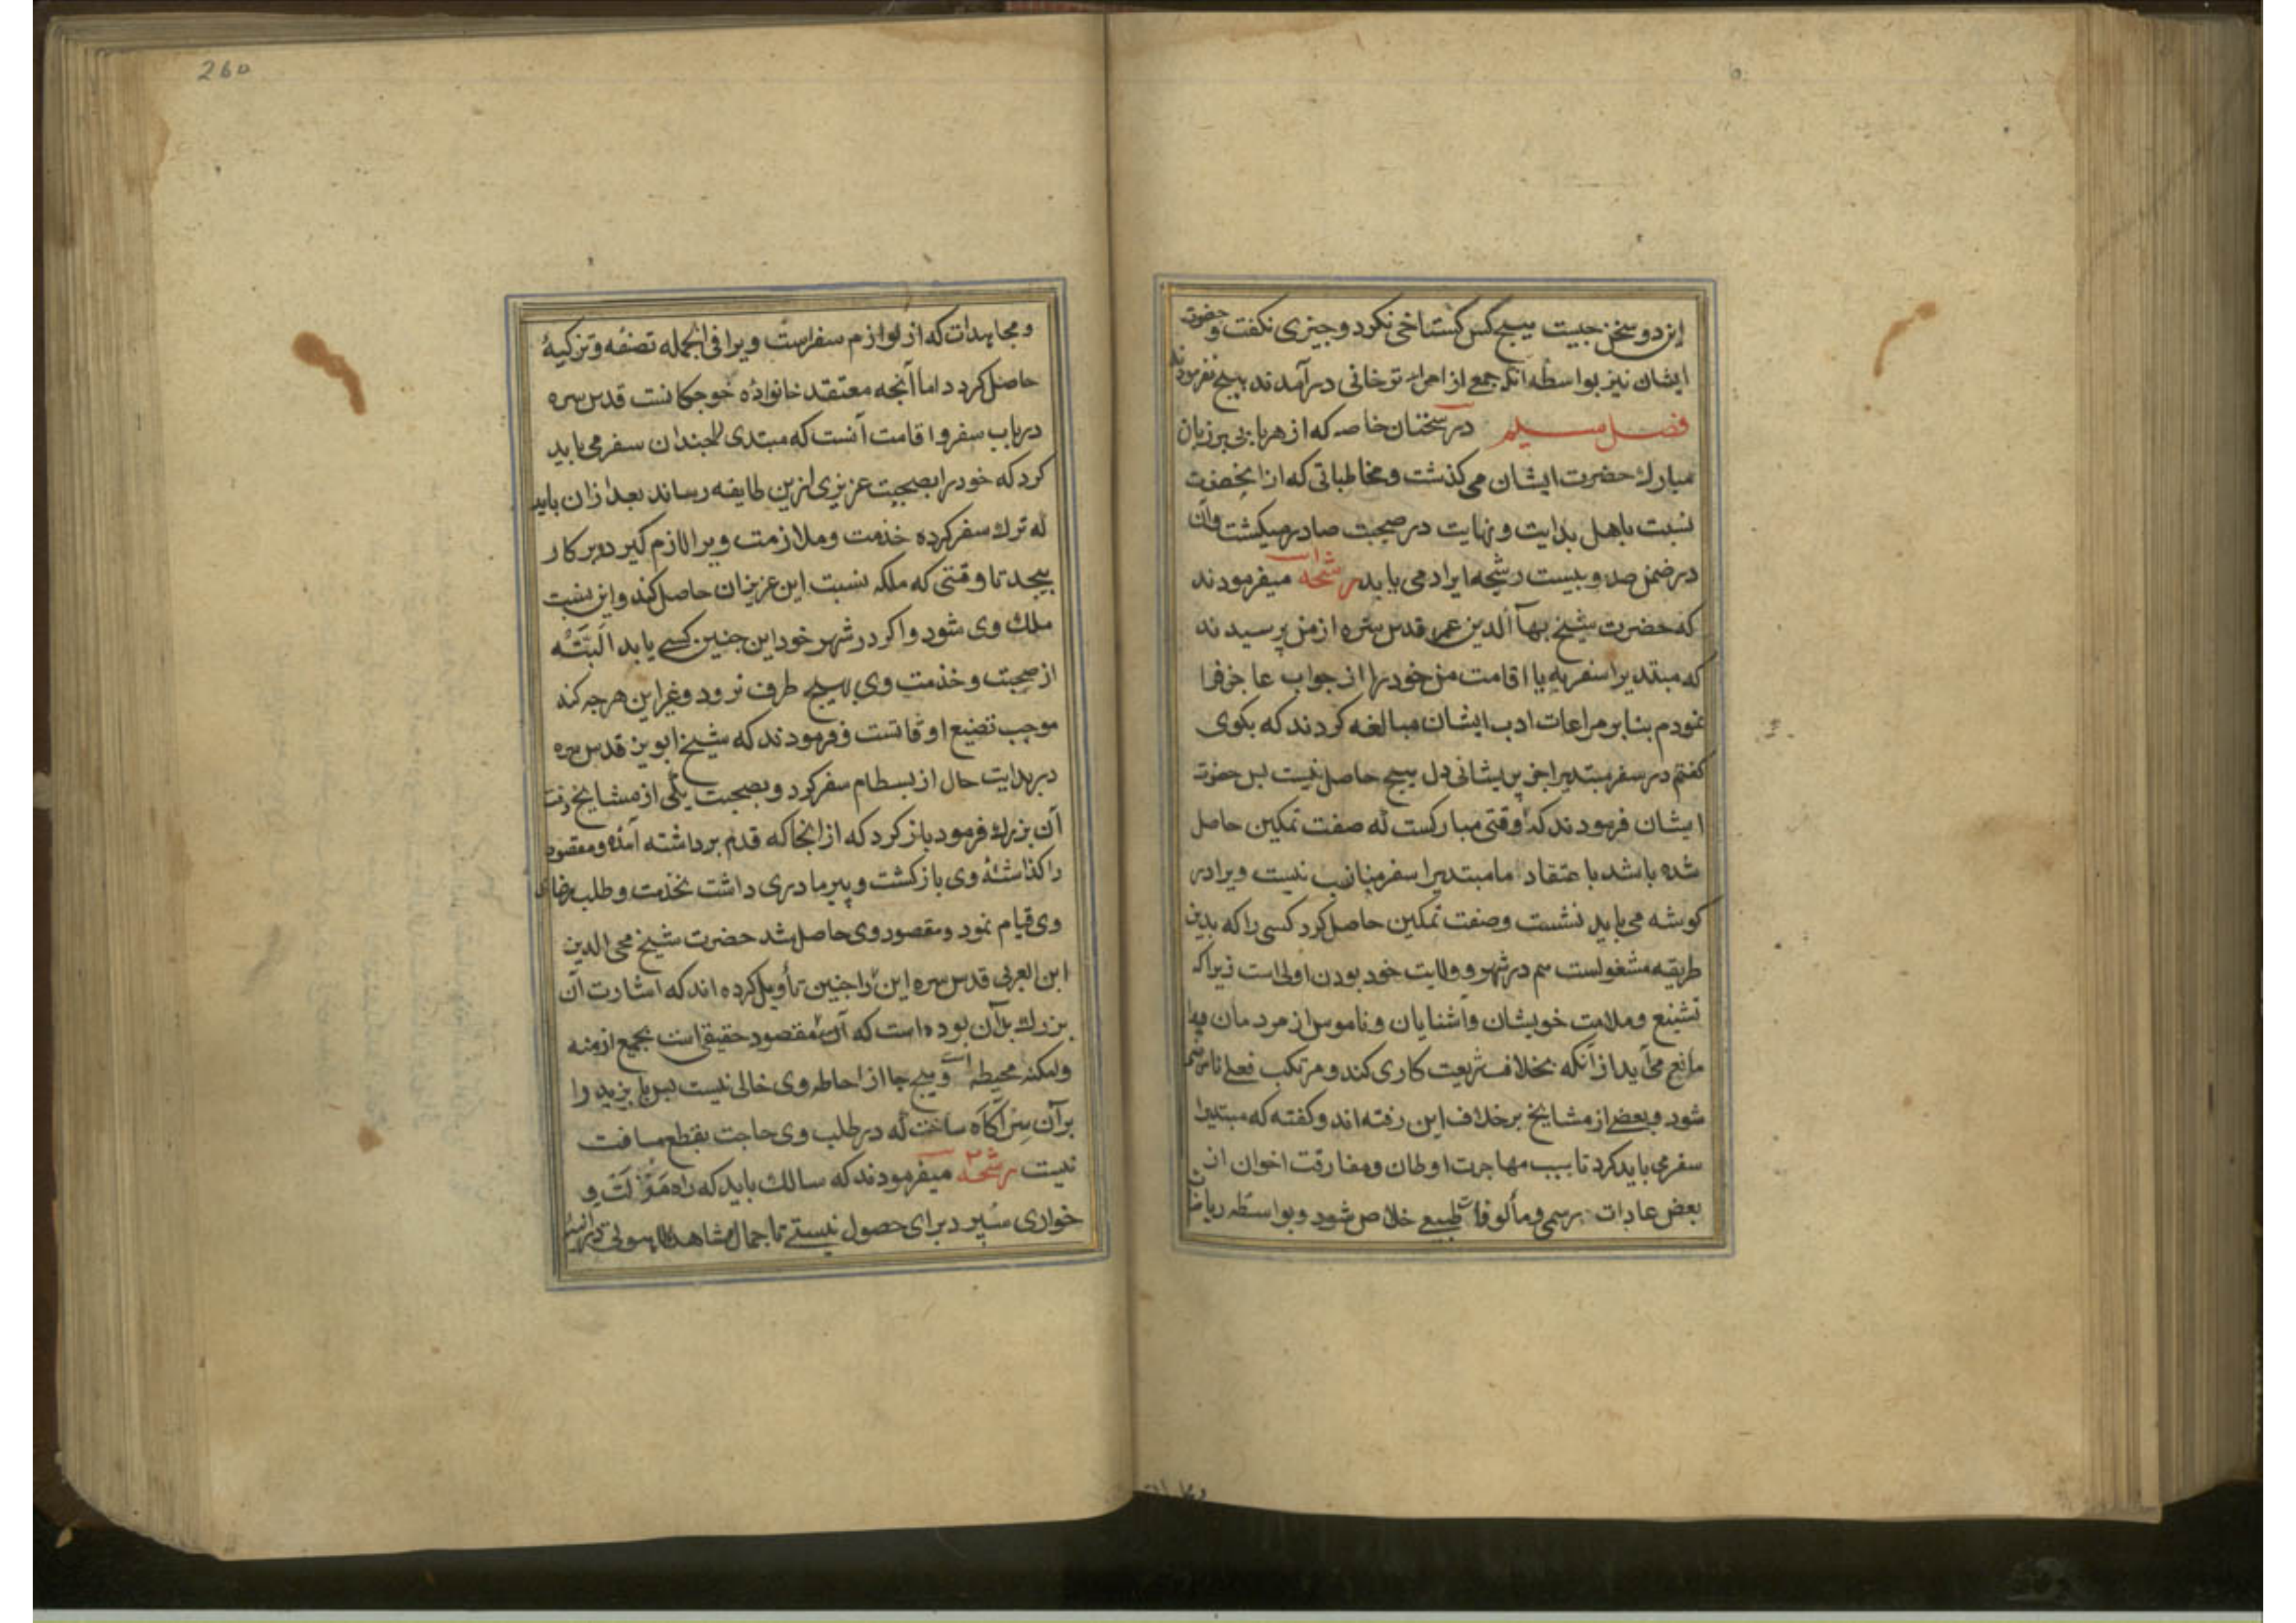 این دو سخن چیست هیچ کس گستاخی نکرد و چیزی نگفت و حضرت
ایشان نیز بواسطه آنکه جمع از امراء ترخانی در آمدند هیچ نفرمودند
فصل سیم در سخنان خاصه که از هر بابی بر زبان
مبارك حضرت ایشان می کذشت و مخاطباتی که از انحضرت
نسبت باهل بدایت و نهایت در صحبت صادر میکشت و آن
در ضمن صد و بیست رشحه ایراد می یابد رشحه میفرمودند
که حضرت شیخ بهاآلدین عمر قدس سره از من پرسیدند
که مبتدیرا سفر به یا اقامت من خود را از جواب عاجز فرا
نمودم بنا بر مراعات ادب ایشان مبالغه کردند که بکوی
کفتم در سفر مبتدیرا جز پریشانی دل هیچ حاصل نیست پس حضرت
ایشان فرمودند که وقتی مبارکست که صفت تمکین حاصل
شده باشد با عتقاد ما مبتدیرا سفر مناسب نیست ویرا در
کوشه می باید نشست وصفت تمکین حاصل کرد کسی را که بدین
طریقه مشغولست هم در شهر و ولایت خود بودن اولی است زیرا که
تشنیع و ملامت خویشان و آشنایان و ناموس از مردمان ویرا
مانع می آید از آنکه بخلاف شریعت کاری کند و مرتکب فعلی
شود و بعضی از مشایخ بر خلاف این رفته اند و کفته که مبتدیرا
سفر می باید کرد تا بسبب مهاجرت اوطان و مفارقت اخوان از
بعض عادات رسمی و مألوفات طبیعی خلاص شود و بواسطه ریاضات
260
و مجاهدات که از لوازم سفراست ویرا فی الجمله تصفیه و تزکیهٔ
حاصل کردد اما آنچه معتقد خانوادهٔ خوجکانست قدس سره
در باب سفر و اقامت آنست که مبتدی را چندان سفر می باید
کرد که خود را بصحبت عزیزی ازین طایفه رساند بعد ازان باید
که ترك سفر کرده خدمت و ملازمت ویرا لازم کیرد و بر کار
بیچد تا وقتی که ملکه نسبت این عزیزان حاصل کند و این نسبت
ملك وی شود و اکر در شهر خود این چنین کسی یابد البته
از صحبت و خدمت وی بهیچ طرف نرود و غیر این هرچه کند
موجب تضییع اوقاتست و فرمودند که شیخ ابویزید قدس سره
در بدایت حال از بسطام سفر کرد و بصحبت یکی از مشایخ رفت
آن بزرك فرمود باز کرد که از انجا که قدم برداشته آمده و مقصود
را کذاشتهٔ وی بازکشت و پیر مادری داشت بخدمت و طلب رضای
وی قیام نمود و مقصود وی حاصل شد حضرت شیخ محی الدین
ابن العربی قدس سره این را چنین تأویل کرده اند که اشارت آن
بزرك بدآن بوده است که آن مقصود حقیقی است بجمیع ازمنه
وامکنه محیطه است و هیچ جا از احاطه وی خالی نیست پس با یزید را
برآن سر آکاه ساخت که در طلب وی حاجت بقطع مسافت
نیست رشحه میفرمودند که سالك باید که راه مذلت و
خواری سپرد برای حصول نیستی تا جمال مشاهده